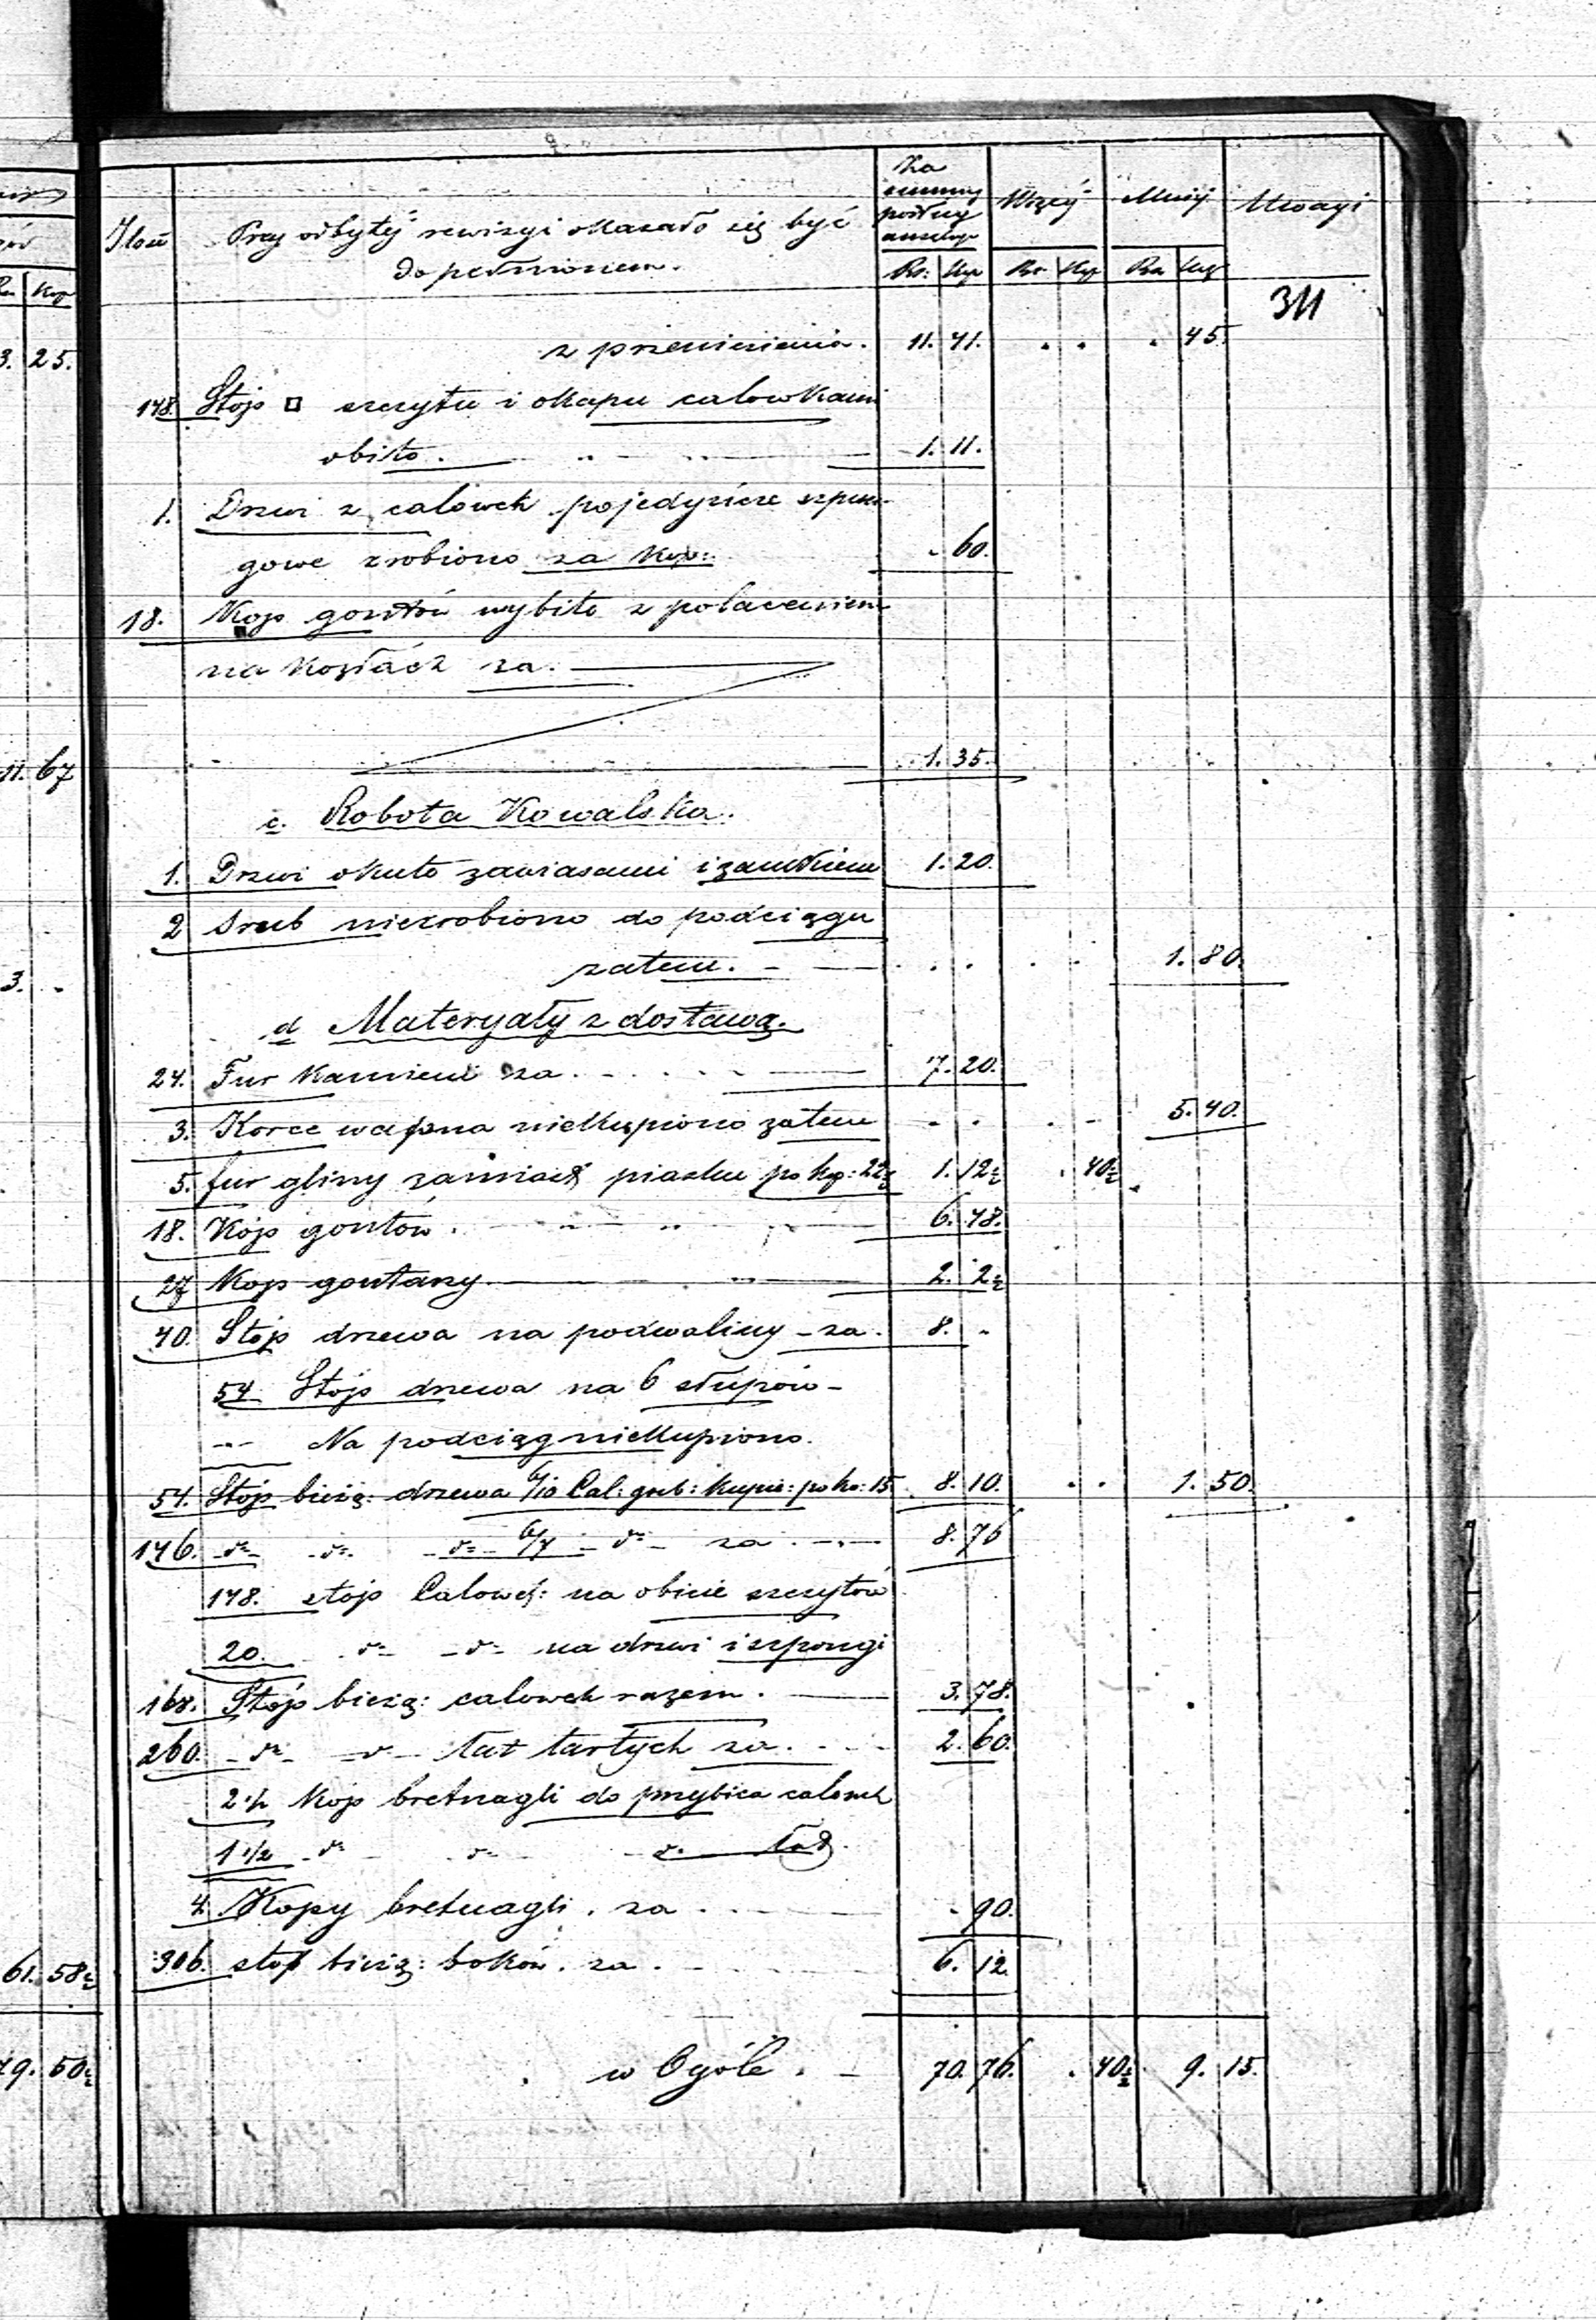 9.
Ilość Przy odbytéj rewizyi okazało się być
dopełnionem.
Za summę podług anszlagu Rs: Kop Więcéj Rs. Kop Mniéj Rs. Kop Uwagi
311
z przeniesienia. 11. 41. . . . 45.
148. Stóp □ szczytu i okapu calowkami
obito. 1. 11.
1. Drzwi z calowek pojedyńcze szpun-
gowe zrobiono za Kop: - 60.
18. Kop gontów wybito z połaceniem
na Kozłach za.
1. 35.
c. Robota Kowalska.
1. Drzwi okuto zawiasami i zamkiem 1. 20.
2 Srub niezrobiono do podciągu
zatem. . . . . 1. 80.
d Materyały z dostawą.
24. Fur Kamieni za. 7. 20.
3. Korce wapna niekupiono zatem . . . - 5. 40.
5. fur gliny zamiast piasku po kop: 22½ 1. 12½ . 40½
18. Kóp gontów. 6. 48.
27 Kop gontazy. 2. 2½
40. Stóp drzewa na podwaliny - za. 8. -
54 Stóp drzewa na 6 słupów -
Na podciąg niekupiono.
54. Stóp bieżą: drzewa 6/10 Cal: grub: kupio: po ko: 15. 8. 10. . . 1. 50.
146. d⁰ d⁰ d⁰ 6/7 d⁰ za. 8. 76
148. stóp Calowek: na obicie szczytów
20. d⁰ d⁰ na drzwi i szpongi
168. Stóp bieżą: calowek razem. 3. 78.
260. d⁰ d⁰ łat tartych za. 2. 60.
2½ Kop bretnagli do przybica calowek
1 1/2 d⁰ d⁰ d. łat.
4. Kopy bretnagli. za. - 90.
306. stóp bieżą: boków. za. 6. 12.
w Ogóle. 70. 76. . 40½ 9. 15.
Kop
3. 25.
11. 67
3. -
61. 58½